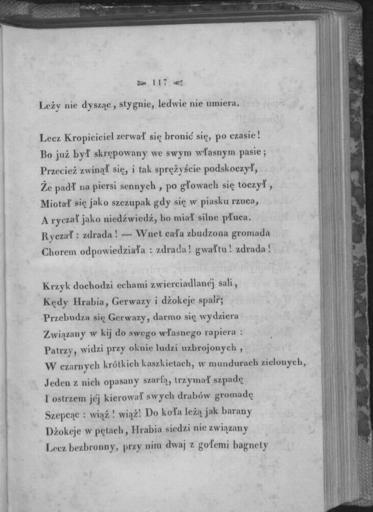 117
Leży nie dysząc, stygnie, ledwie nie umiera.
Lecz Kropiciciel zerwał się bronić się, po czasie!
Bo już był skrępowany we swym własnym pasie;
Przecież zwinął się, i tak sprężyście podskoczył,
Że padł na piersi sennych, po głowach się toczył,
Miotał się jako szczupak gdy się w piasku rzuca,
A ryczał jako niedźwiedź, bo miał silne płuca.
Ryczał: zdrada! — Wnet cała zbudzona gromada
Chorem odpowiedziała: zdrada! gwałtu! zdrada!
Krzyk dochodzi echami zwierciadlanéj sali,
Kędy Hrabia, Gerwazy i dżokeje spali;
Przebudza się Gerwazy, darmo się wydziera
Związany w kij do swego własnego rapiera:
Patrzy, widzi przy oknie ludzi uzbrojonych,
W czarnych krótkich kaszkietach, w mundurach zielonych,
Jeden z nich opasany szarfą, trzymał szpadę
I ostrzem jéj kierował swych drabów gromadę
Szepcąc: wiąż! wiąż! Do koła leżą jak barany
Dżokeje w pętach, Hrabia siedzi nie związany
Lecz bezbronny, przy nim dwaj z gołemi bagnety